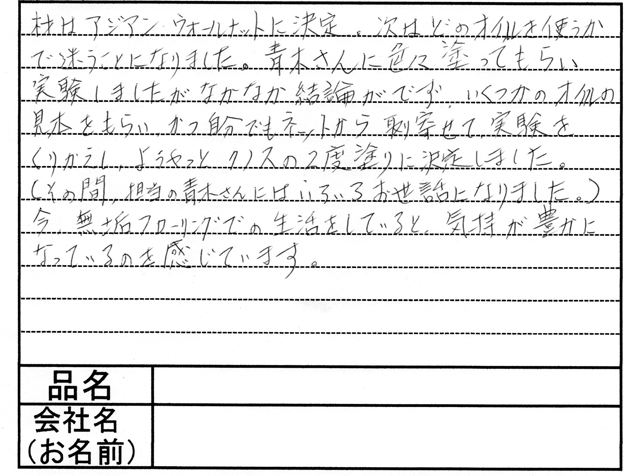 材はアジアンウォールナットに決定。次はどのオイルを使うか
で迷うことになりました。青木さんに色々塗ってもらい
実験しましたがなかなか結論がでず、いくつかのオイルの
見本をもらい かつ自分でもネットから取寄せて、実験を
くりかえし、ようやっと クノスの2度塗りに決定しました。
(その間、担当の青木さんにはいろいろお世話になりました。)
今 無垢フローリングでの生活をしていると、気持が豊かに
なっているのを感じています。
品名
会社名
(お名前)